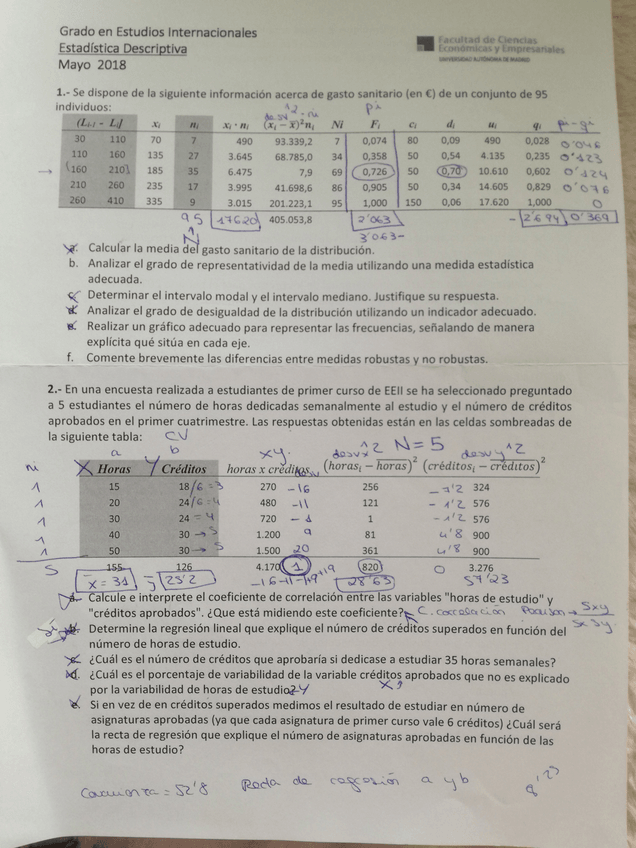 Grado en Estudios Internacionales
Estadística Descriptiva
Mayo 2018
Facultad de Ciencias
Económicas y Empresariales
UNIVERSIDAD AUTÓNOMA DE MADRID
1.- Se dispone de la siguiente información acerca de gasto sanitario (en €) de un conjunto de 95
individuos:
(Lᵢ₋₁ - Lᵢ] xᵢ nᵢ xᵢ · nᵢ (xᵢ − x̄)²nᵢ Ni Fᵢ cᵢ dᵢ uᵢ qᵢ pi-qi
30 110 70 7 490 93.339,2 7 0,074 80 0,09 490 0,028 0'046
110 160 135 27 3.645 68.785,0 34 0,358 50 0,54 4.135 0,235 0'123
→ (160 210] 185 35 6.475 7,9 69 0,726 50 0,70 10.610 0,602 0'124
210 260 235 17 3.995 41.698,6 86 0,905 50 0,34 14.605 0,829 0'076
260 410 335 9 3.015 201.223,1 95 1,000 150 0,06 17.620 1,000 0
95 17620 405.053,8 2'063 2'694 0'369
N 3'063-
a. Calcular la media del gasto sanitario de la distribución.
b. Analizar el grado de representatividad de la media utilizando una medida estadística
adecuada.
c. Determinar el intervalo modal y el intervalo mediano. Justifique su respuesta.
d. Analizar el grado de desigualdad de la distribución utilizando un indicador adecuado.
e. Realizar un gráfico adecuado para representar las frecuencias, señalando de manera
explícita qué sitúa en cada eje.
f. Comente brevemente las diferencias entre medidas robustas y no robustas.
2.- En una encuesta realizada a estudiantes de primer curso de EEII se ha seleccionado preguntado
a 5 estudiantes el número de horas dedicadas semanalmente al estudio y el número de créditos
aprobados en el primer cuatrimestre. Las respuestas obtenidas están en las celdas sombreadas de
la siguiente tabla: CV
a b xy desvx^2 N=5 desvy^2
ni X Horas Y Créditos horas x créditos (horasᵢ − horas)² (créditosᵢ − créditos)²
1 15 18/6=3 270 -16 256 -7'2 324
1 20 24/6=4 480 -11 121 -1'2 576
1 30 24=4 720 -1 1 -1'2 576
1 40 30→5 1.200 9 81 4'8 900
1 50 30→5 1.500 20 361 4'8 900
5 155 126 4.170 1 820 0 3.276
x̄=31 ȳ=25'2 -16-11-1+9+19 28'63 57'23
a. Calcule e interprete el coeficiente de correlación entre las variables "horas de estudio" y
"créditos aprobados". ¿Que está midiendo este coeficiente? C. correlación Pearson → Sxy
Sx Sy
b. Determine la regresión lineal que explique el número de créditos superados en función del
número de horas de estudio.
c. ¿Cuál es el número de créditos que aprobaría si dedicase a estudiar 35 horas semanales?
d. ¿Cuál es el porcentaje de variabilidad de la variable créditos aprobados que no es explicado
por la variabilidad de horas de estudio?
e. Si en vez de en créditos superados medimos el resultado de estudiar en número de
asignaturas aprobadas (ya que cada asignatura de primer curso vale 6 créditos) ¿Cuál será
la recta de regresión que explique el número de asignaturas aprobadas en función de las
horas de estudio?
Covarianza = 52'8 Recta de regresión a y b